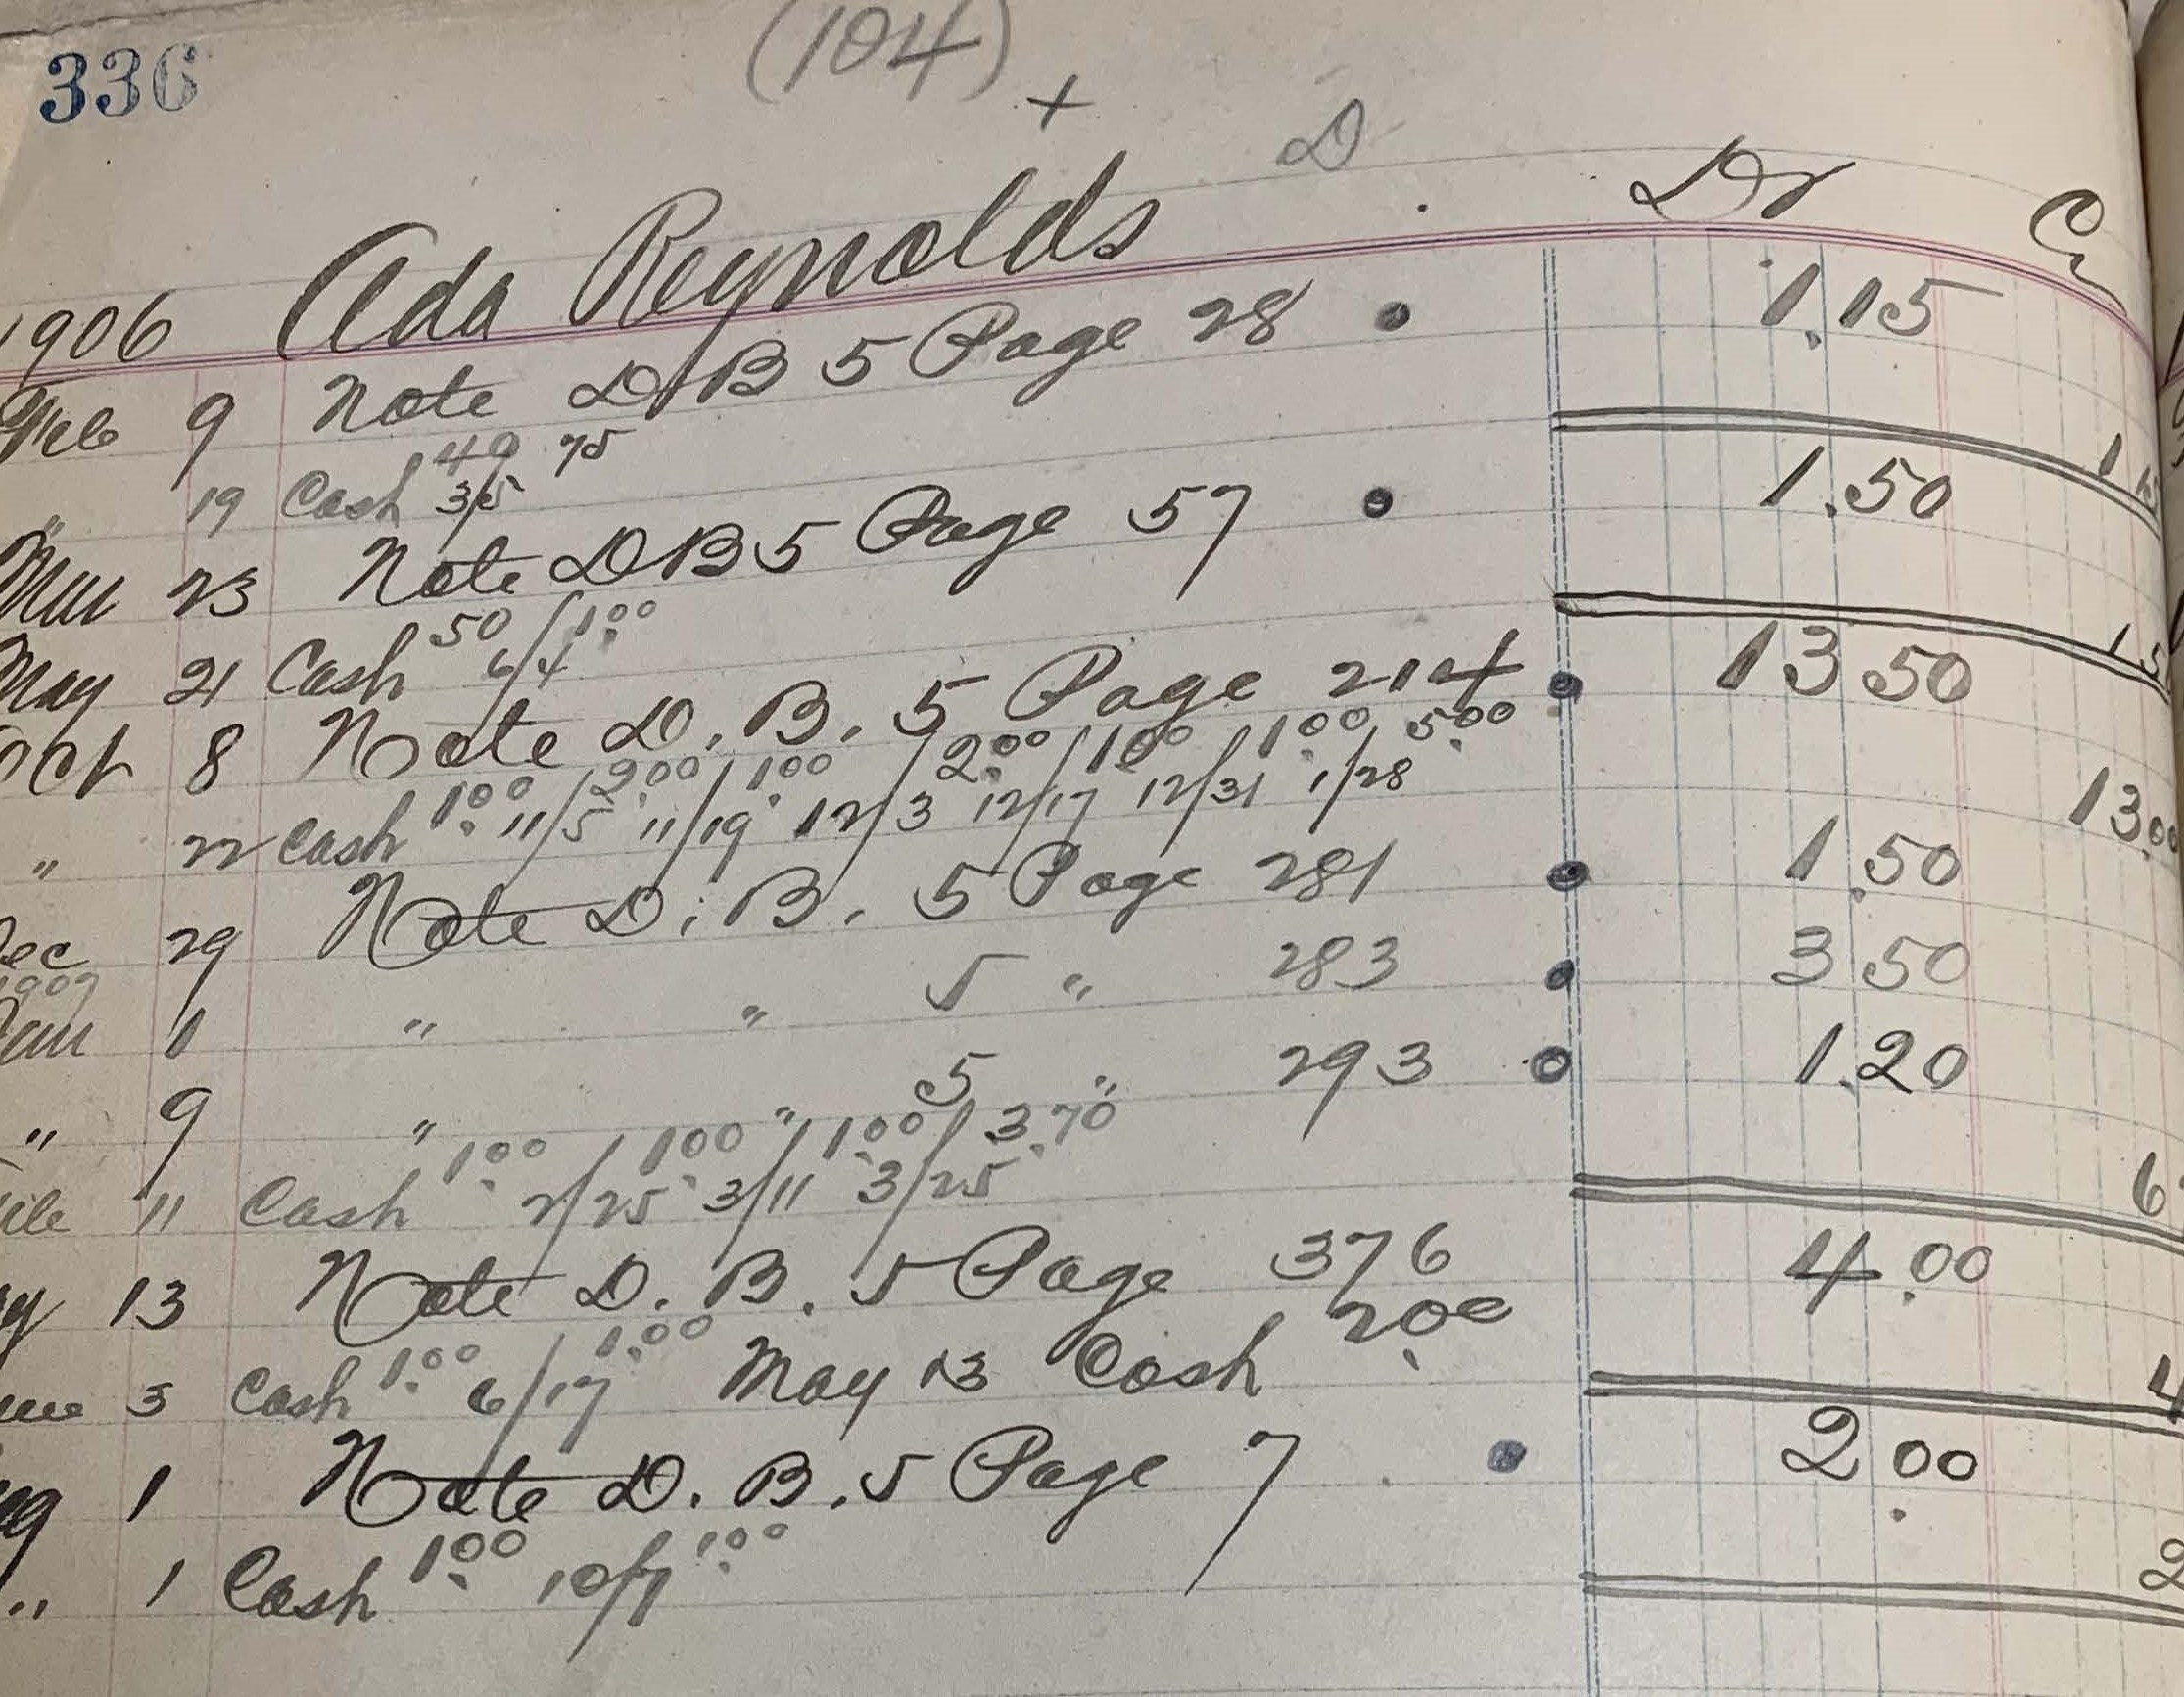 336 (104) +
D
Dr Cr
1906 Ada Reynolds
Feb 9 Note D B 5 Page 28 • 1.15
" 19 Cash 40 3/5 75 1
Mar 23 Note D B 5 Page 57 • 1.50
May 21 Cash 50 6/4 1.00 1 5
Oct 8 Note D. B. 5 Page 214 • 13 50
" 22 Cash 1.00 11/5 2.00 11/19 1.00 12/3 2.00 12/17 1.00 12/31 1.00 1/28 5.00 13.00
Dec 29 Note D. B. 5 Page 281 • 1.50
Jan 1 " " 5 " 283 • 3 50
" 9 " " 5 " 293 • 1.20
11 Cash 1.00 2/25 1.00 3/11 1.00 3/25 3.70 6
13 Note D. B. 5 Page 376 4.00
3 Cash 1.00 6/17 1.00 May 13 Cash 2.00 4
1 Note D. B. 5 Page 7 • 2.00
" 1 Cash 1.00 10/7 1.00 2